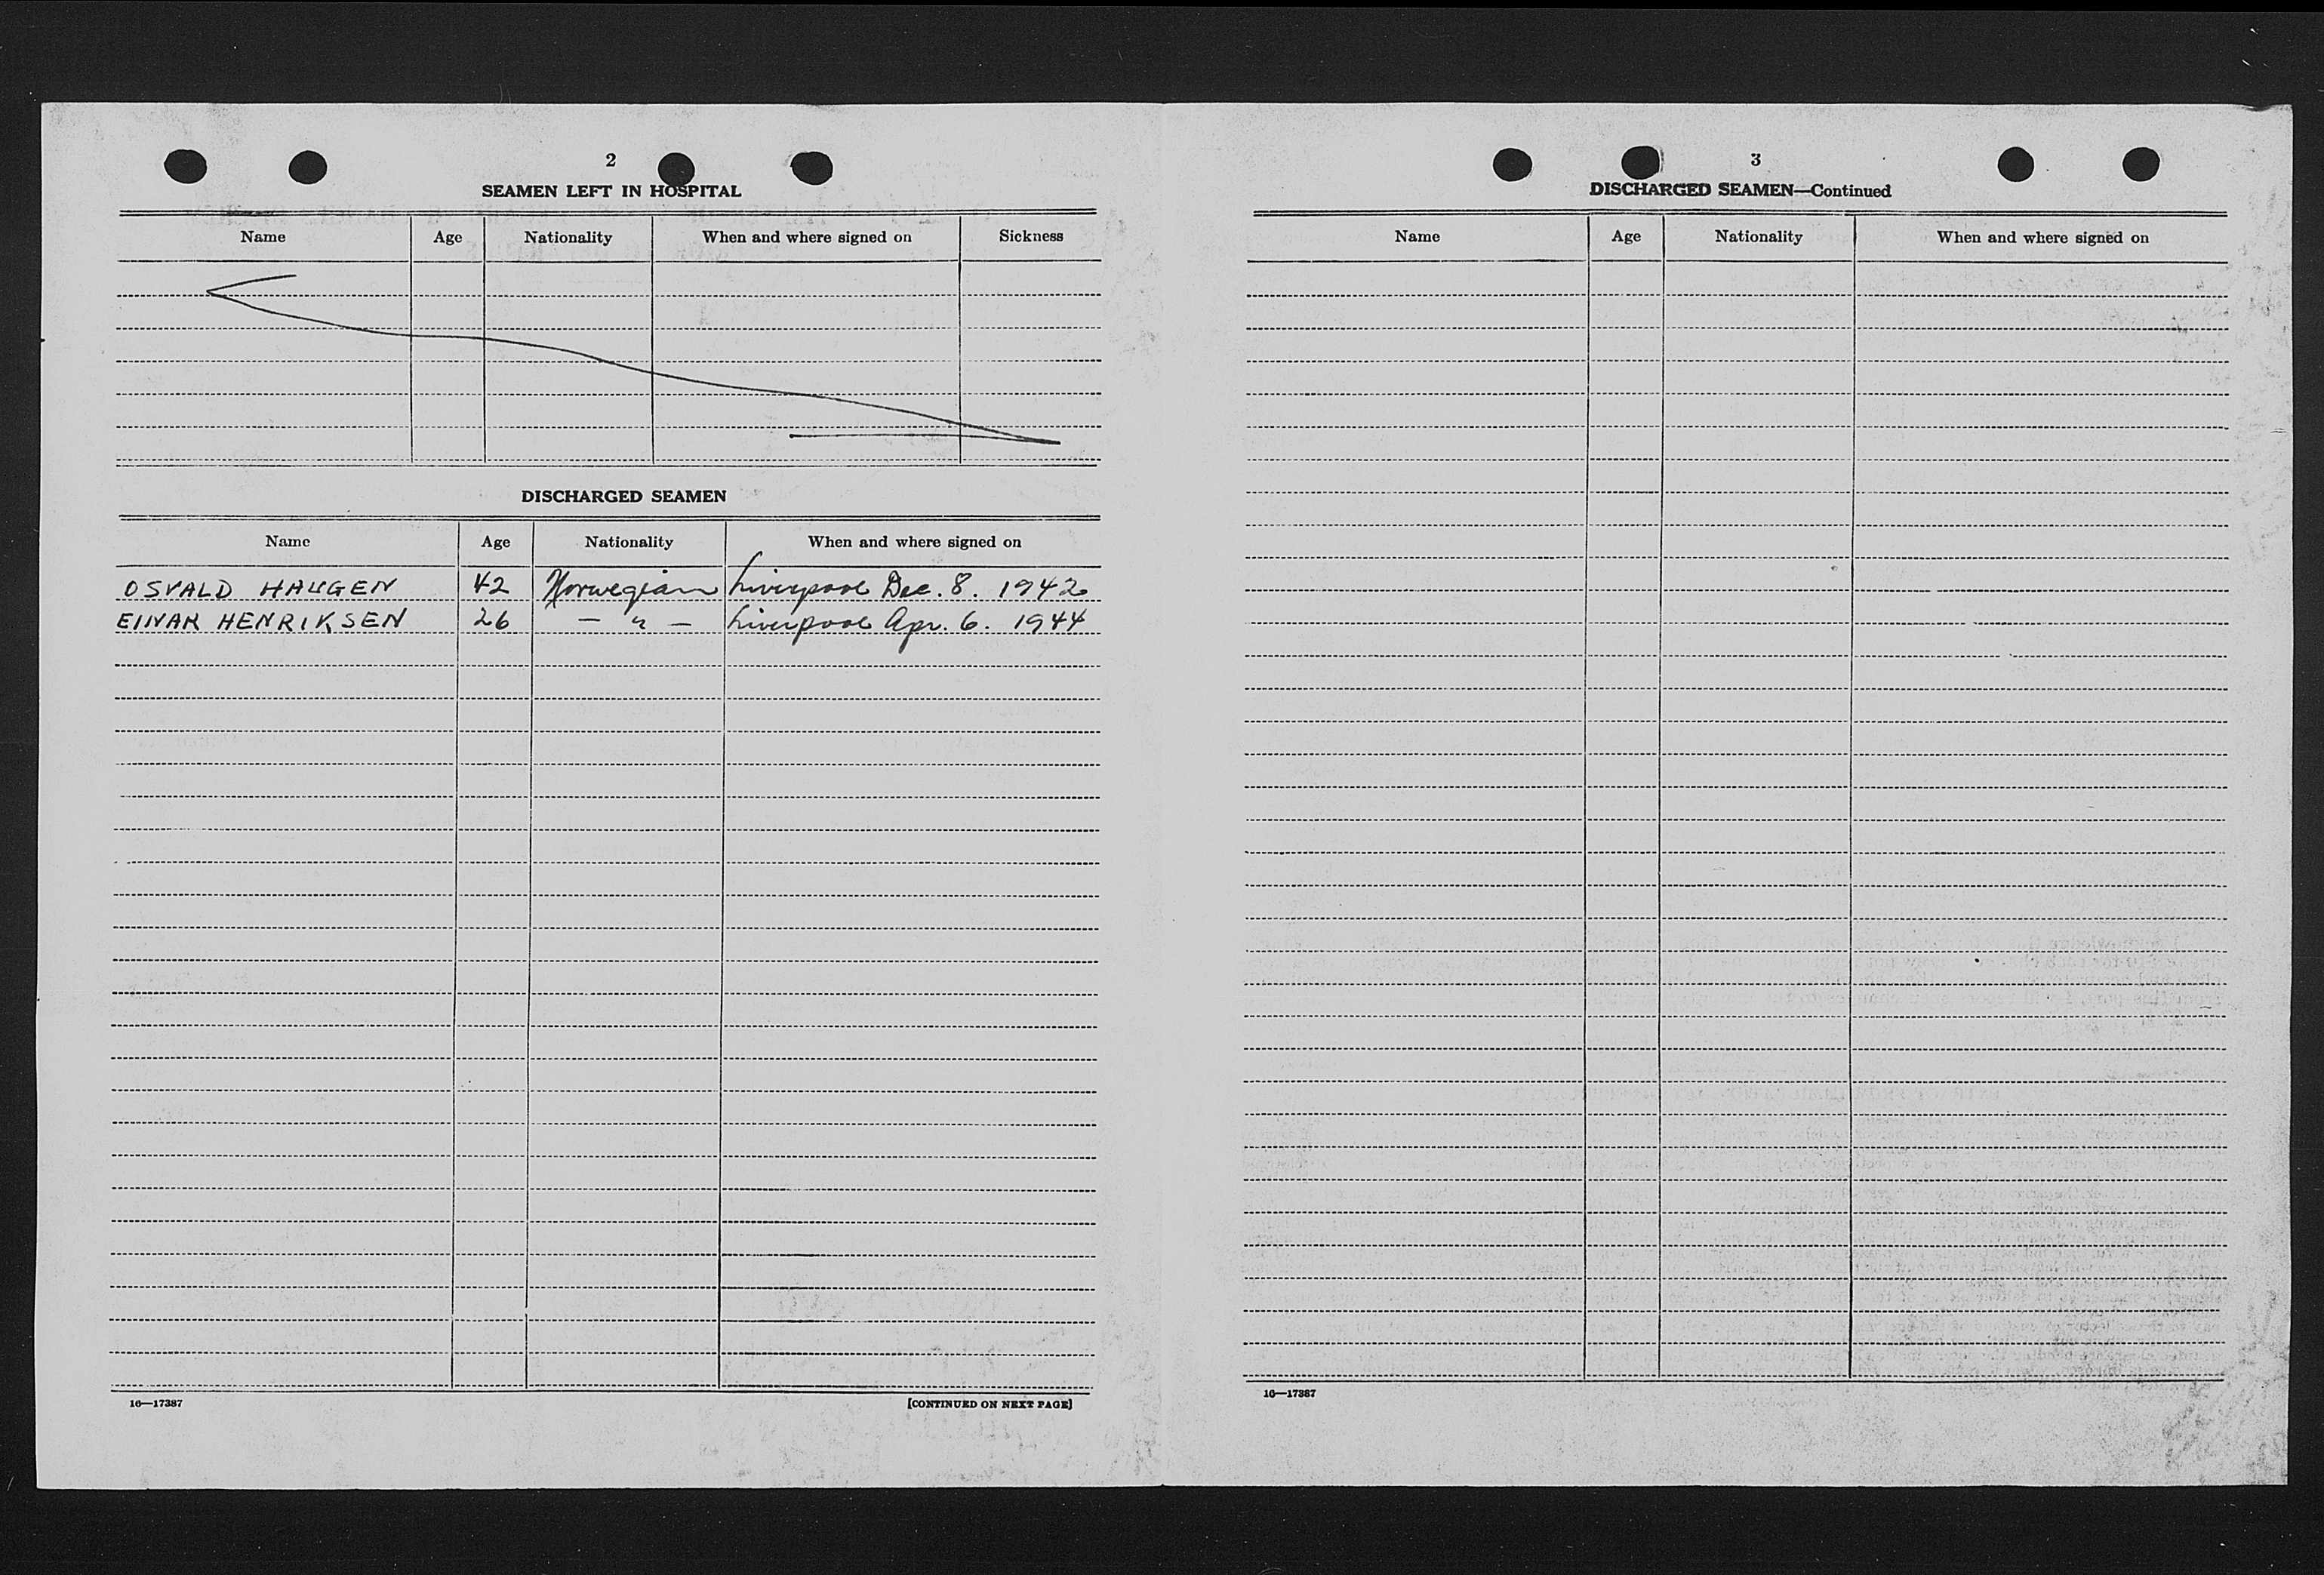 2
SEAMEN LEFT IN HOSPITAL
Name Age Nationality When and where signed on Sickness
DISCHARGED SEAMEN
Name Age Nationality When and where signed on
OSVALD HAUGEN 42 Norwegian Liverpool Dec. 8. 1942
EINAR HENRIKSEN 26 — " — Liverpool Apr. 6. 1944
16—17387 [CONTINUED ON NEXT PAGE]
3
DISCHARGED SEAMEN—Continued
Name Age Nationality When and where signed on
16—17387